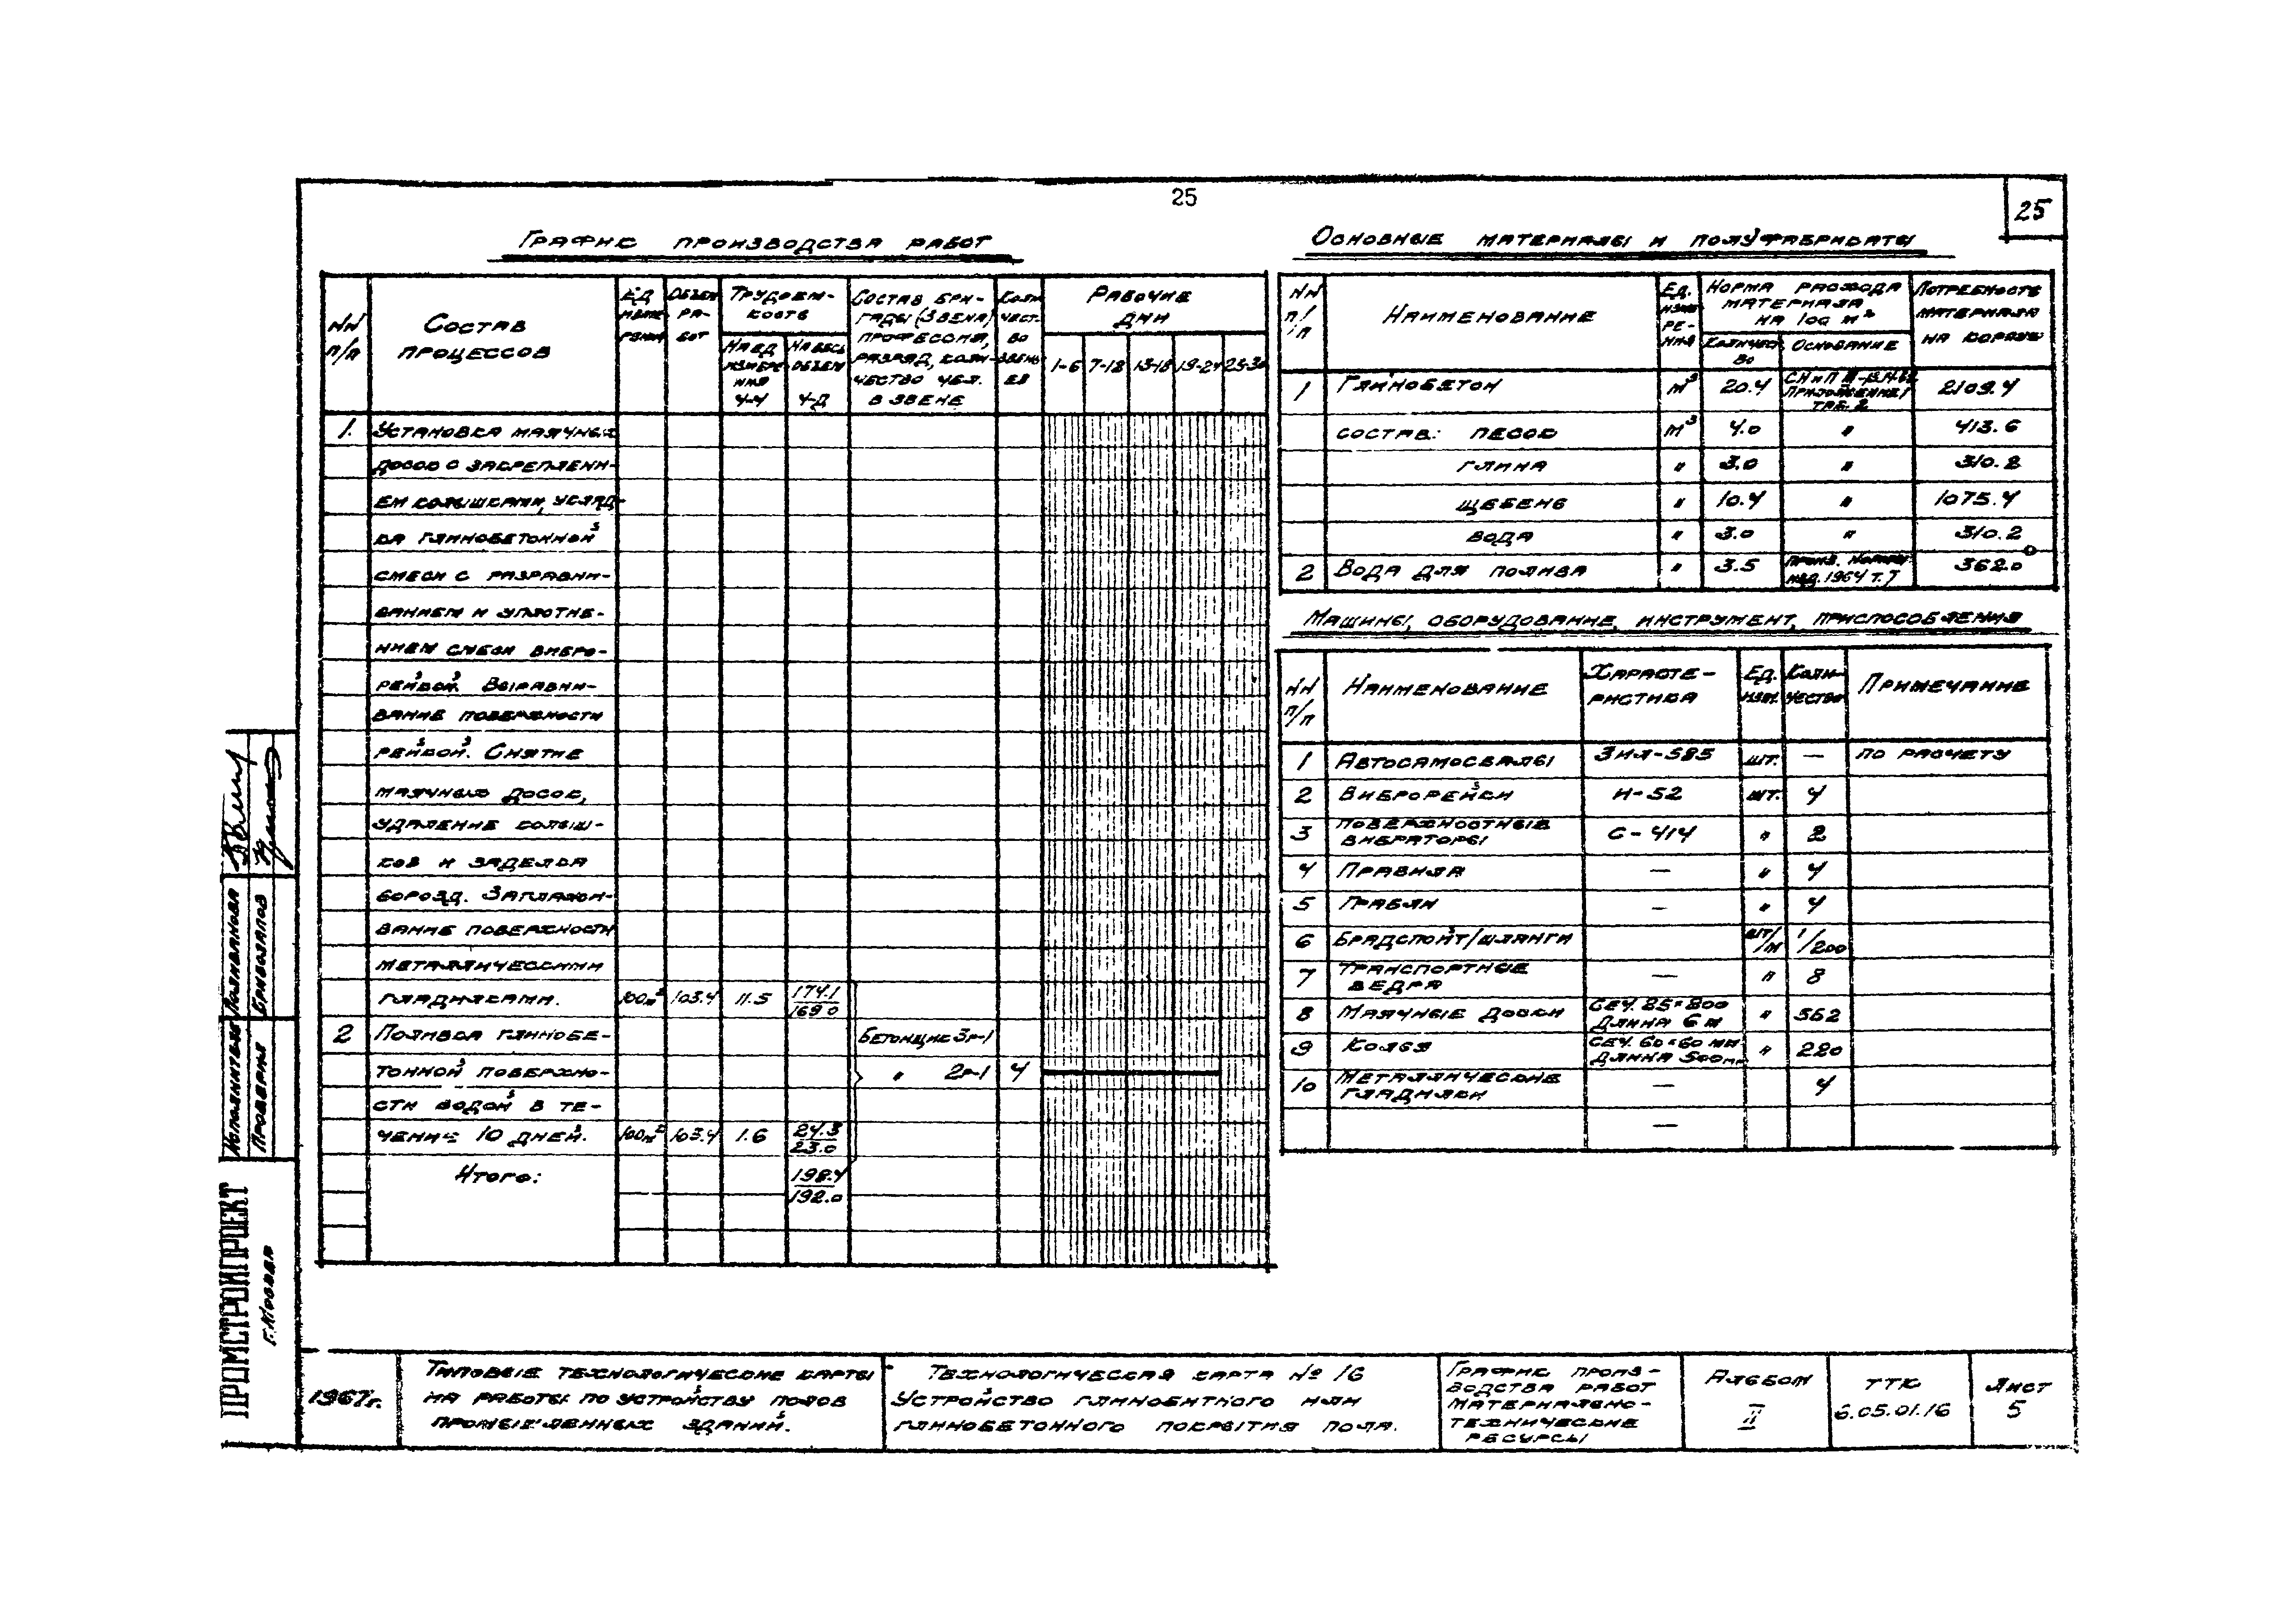 25
25
График производства работ
NN п/п
Состав процессов
Ед. изме-рения
Объем ра-бот
Трудоем-кость
На ед. измере-ния ч-ч
На весь объем ч-д
Состав бри-гады (звена) профессия, разряд, коли-чество чел. в звене
Коли-чест-во звень-ев
Рабочие дни
1-6 7-12 13-18 19-24 25-30
1. Установка маячных
досок с закреплени-
ем колышками, уклад-
ка глинобетонной
смеси с разравни-
ванием и уплотне-
нием смеси вибро-
рейкой. Выравни-
вание поверхности
рейкой. Снятие
маячных досок,
удаление колыш-
ков и заделка
борозд. Заглажи-
вание поверхности
металлическими
гладилками. 100м² 103.4 11.5 174.1/169.0
2 Поливка глинобе- Бетонщик 3р-1
тонной поверхно- " 2р-1 4
сти водой в те-
чение 10 дней. 100м² 103.4 1.6 24.3/23.0
Итого: 198.4/192.0
Основные материалы и полуфабрикаты
NN п/п
Наименование
Ед. изме-ре-ния
Норма расхода материала на 100 м²
Количест-во
Основание
Потребность материала на корпус
1 Глинобетон м³ 20.4 СНиП Приложение 1 таб. 2 2109.4
состав: песок м³ 4.0 " 413.6
глина " 3.0 " 310.2
щебень " 10.4 " 1075.4
вода " 3.0 " 310.2
2 Вода для полива " 3.5 Произв. нормы изд. 1964 г. 362.0
Машины, оборудование, инструмент, приспособления
NN п/п
Наименование
Характе-ристика
Ед. изм.
Коли-чество
Примечание
1 Автосамосвалы ЗИЛ-585 шт. — по расчету
2 Виброрейки И-52 шт. 4
3 Поверхностные вибраторы С-414 " 2
4 Правила — " 4
5 Грабли — " 4
6 Брандспойт/шланги шт/м 1/200
7 Транспортные ведра — " 8
8 Маячные доски Длина 6 м " 362
9 Колья сеч. 60×60 мм Длина 500мм " 220
10 Металлические гладилки — 4
—
Исполнитель
Проверил
ПРОМСТРОЙПРОЕКТ
г. Москва
1967г.
Типовые технологические карты
на работы по устройству полов
промышленных зданий.
Технологическая карта № 16
Устройство глинобитного или
глинобетонного покрытия пола.
График произ-
водства работ
Материально-
технические
ресурсы
Альбом
II
ТТК
6.05.01.16
Лист
5